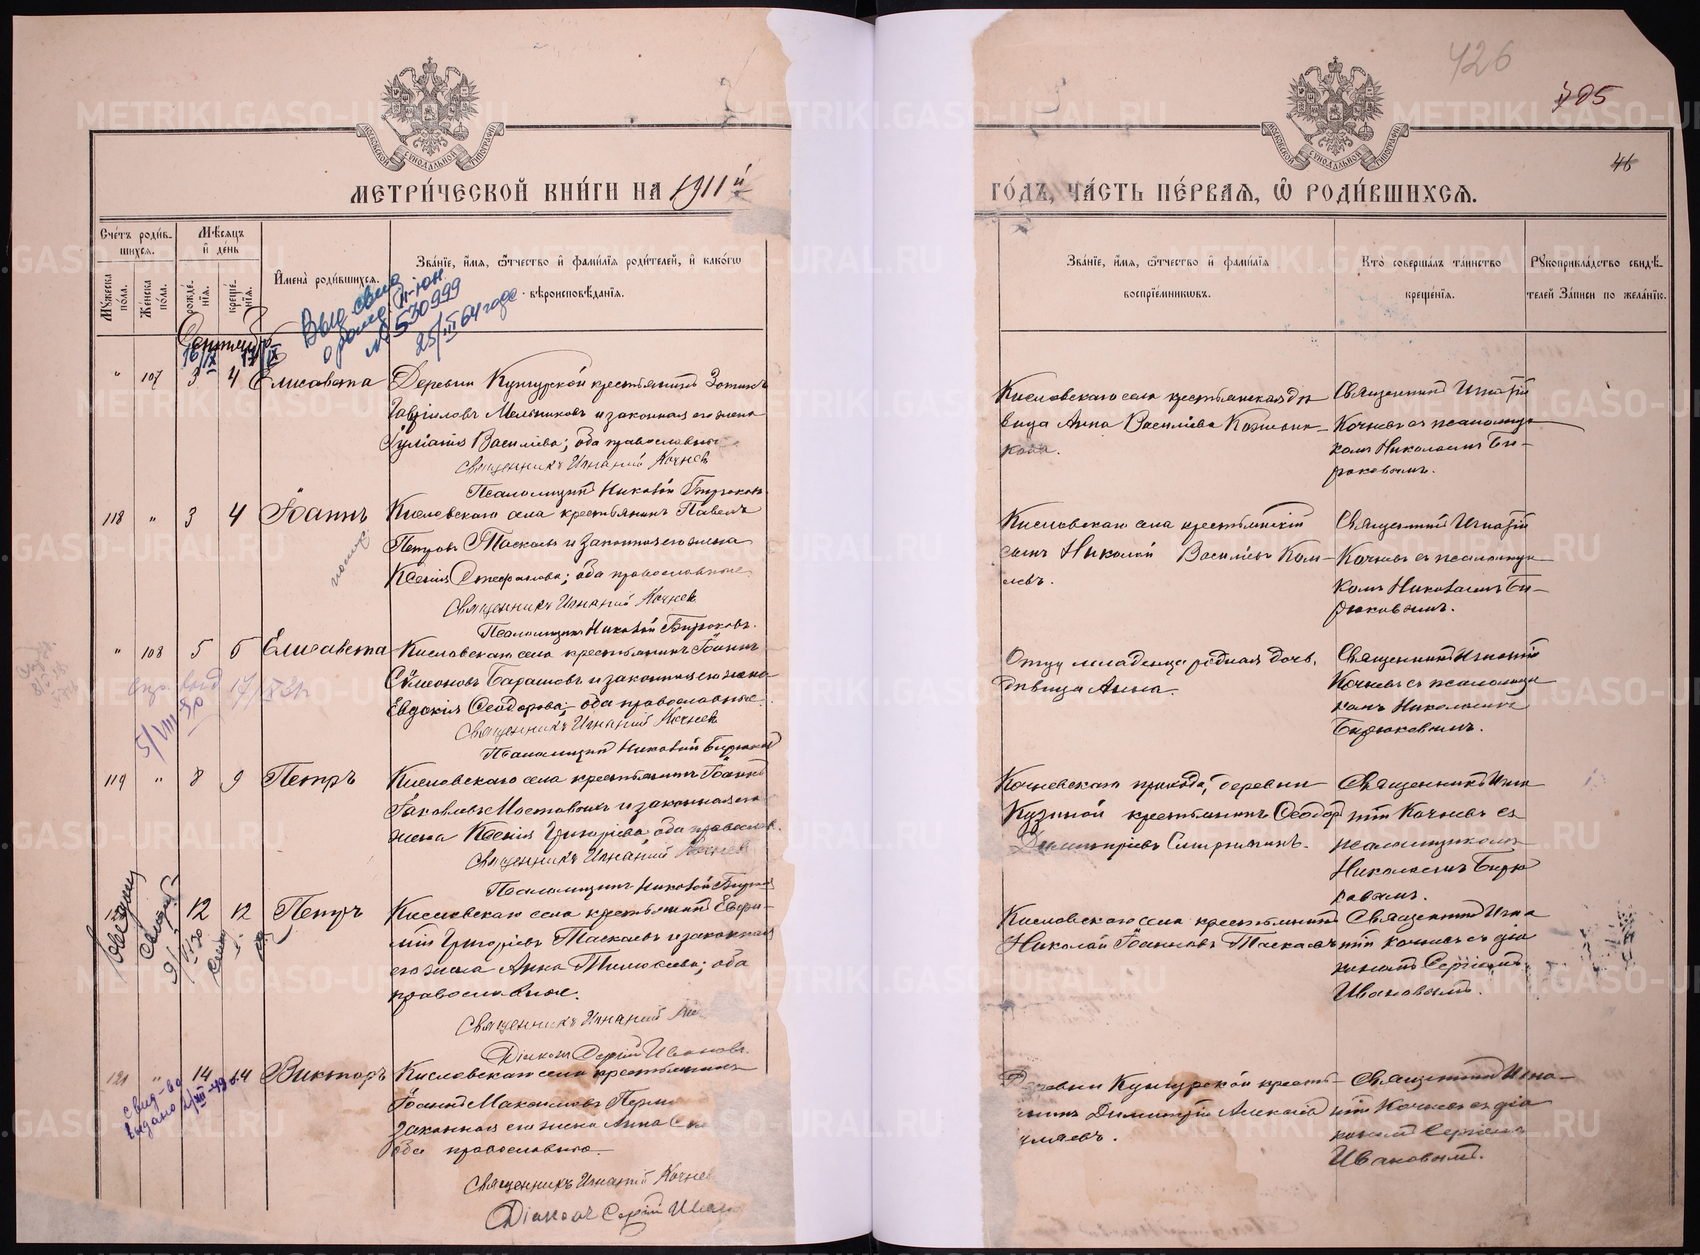 426
405
46
МОСКОВСКОЙ СѴНОДАЛЬНОЙ ТИПОГРАФІИ
МОСКОВСКОЙ СѴНОДАЛЬНОЙ ТИПОГРАФІИ
МЕТРИ́ЧЕСКОЙ КНИ́ГИ НА 1911й
ГО́ДЪ, ЧА́СТЬ ПЕ́РВАЯ, Ѡ РОДИ́ВШИХСЯ.
Сче́тъ роди́в-
шихся.
Му́жеска
по́ла.
Же́нска
по́ла.
Мѣ́сяцъ
и҆ де́нь
рожде́-
нія.
креще́-
нія.
И҆мена̀ роди́вшихся.
Зва́ніе, и҆́мя, ѻ҆́тчество и҆ фами́лія роди́телей, и҆ како́гѡ
вѣроисповѣ́данія.
Зва́ніе, и҆́мя, ѻ҆́тчество и҆ фами́лія
воспріе́мникѡвъ.
Кто̀ соверша́лъ та́инство
креще́нія.
Рꙋкоприкла́дство свидѣ́-
телей за́писи по жела́нію.
Выд. свид
о рожд. II-юн
№ 530999
25/III 64 года
Сентябрь
16/IX 17/IX
" 107 3 4 Елисавета
Деревни Кунгурской крестьянинъ Зотикъ
Гавріиловъ Мельниковъ и законная его жена
Іуліанія Васильева; оба православные
Священникъ Игнатій Кочнев
Псаломщикъ Николай Бирюковъ
Кисловскаго села крестьянская дѣ
вица Анна Васильева
кова.
Священникъ Игнатій
Кочневъ съ псаломщи
комъ Николаемъ Би-
рюковымъ.
118 " 3 4 Іоаннъ
Кисловскаго села крестьянинъ Павелъ
Петровъ Таскаевъ и законная его жена
Ксенія Стефанова; оба православные
Священникъ Игнатий Кочнев
Псаломщикъ Николай Бирюковъ.
Кисловскаго села крестьянскій
сынъ Николай Васильевъ Ком-
левъ.
Священникъ Игнатій
Кочневъ съ псаломщи
комъ Николаемъ Би-
рюковымъ.
" 108 5 6 Елисавета
Кисловскаго села крестьянинъ Іоаннъ
Сѵмеоновъ Барашовъ и законная его жена
Евдокія Ѳеодорова; оба православные.
Священникъ Игнатий Кочнев
Псаломщикъ Николай Бирюков
Отцу младенца родная дочь,
дѣвица Анна.
Священникъ Игнатій
Кочневъ съ псаломщи
комъ Николаемъ
Бирюковымъ.
5/VIII
119 " 8 9 Петръ
Кисловскаго села крестьянинъ Іоаннъ
Іаковлевъ Мостовыхъ и законная его
жена Ксенія Григорьева; оба православ.
Священникъ Игнатий Кочнев
Псаломщикъ Николай Бирюк
Кочневскаго прихода, деревни
Кузиной крестьянинъ Ѳеодор
Димитріевъ
Священникъ Игна
тій Кочневъ съ
псаломщикомъ
Николаемъ Бирю
ковымъ.
12 12 Петръ
Кисловскаго села крестьянинъ Евѳи-
мій Григорьевъ Таскаевъ и законная
его жена Анна Тимоѳеева; оба
православные.
Священникъ Игнатий
Діаконъ Сергій Ивановъ.
Кисловскаго села крестьянинъ
Николай Іоанновъ Таскаевъ
Священникъ Игна
тій Кочневъ съ діа
кономъ Сергіемъ
Ивановымъ.
121 " 14 14 Викторъ
свид-во
выдано
Кисловскаго села крестьянинъ
Іоаннъ Максимовъ Перм
законная его жена Анна
оба православные.
Священникъ Игнатий Кочнев
Діаконъ Сергій Иван
Деревни Кунгурской кресть-
янинъ Димитрій Алексѣев
Священникъ Игна-
тій Кочневъ съ діа
кономъ Сергіемъ
Ивановымъ.
METRIKI.GASO-URAL.RU